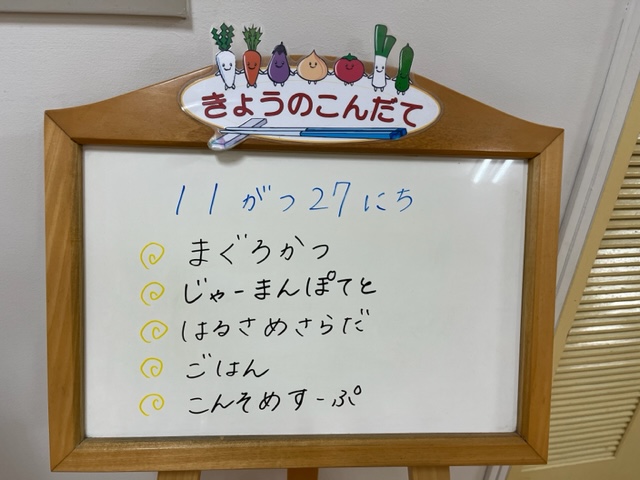 きょうのこんだて
11がつ27にち
まぐろかつ
じゃーまんぽてと
はるさめさらだ
ごはん
こんそめすーぷ